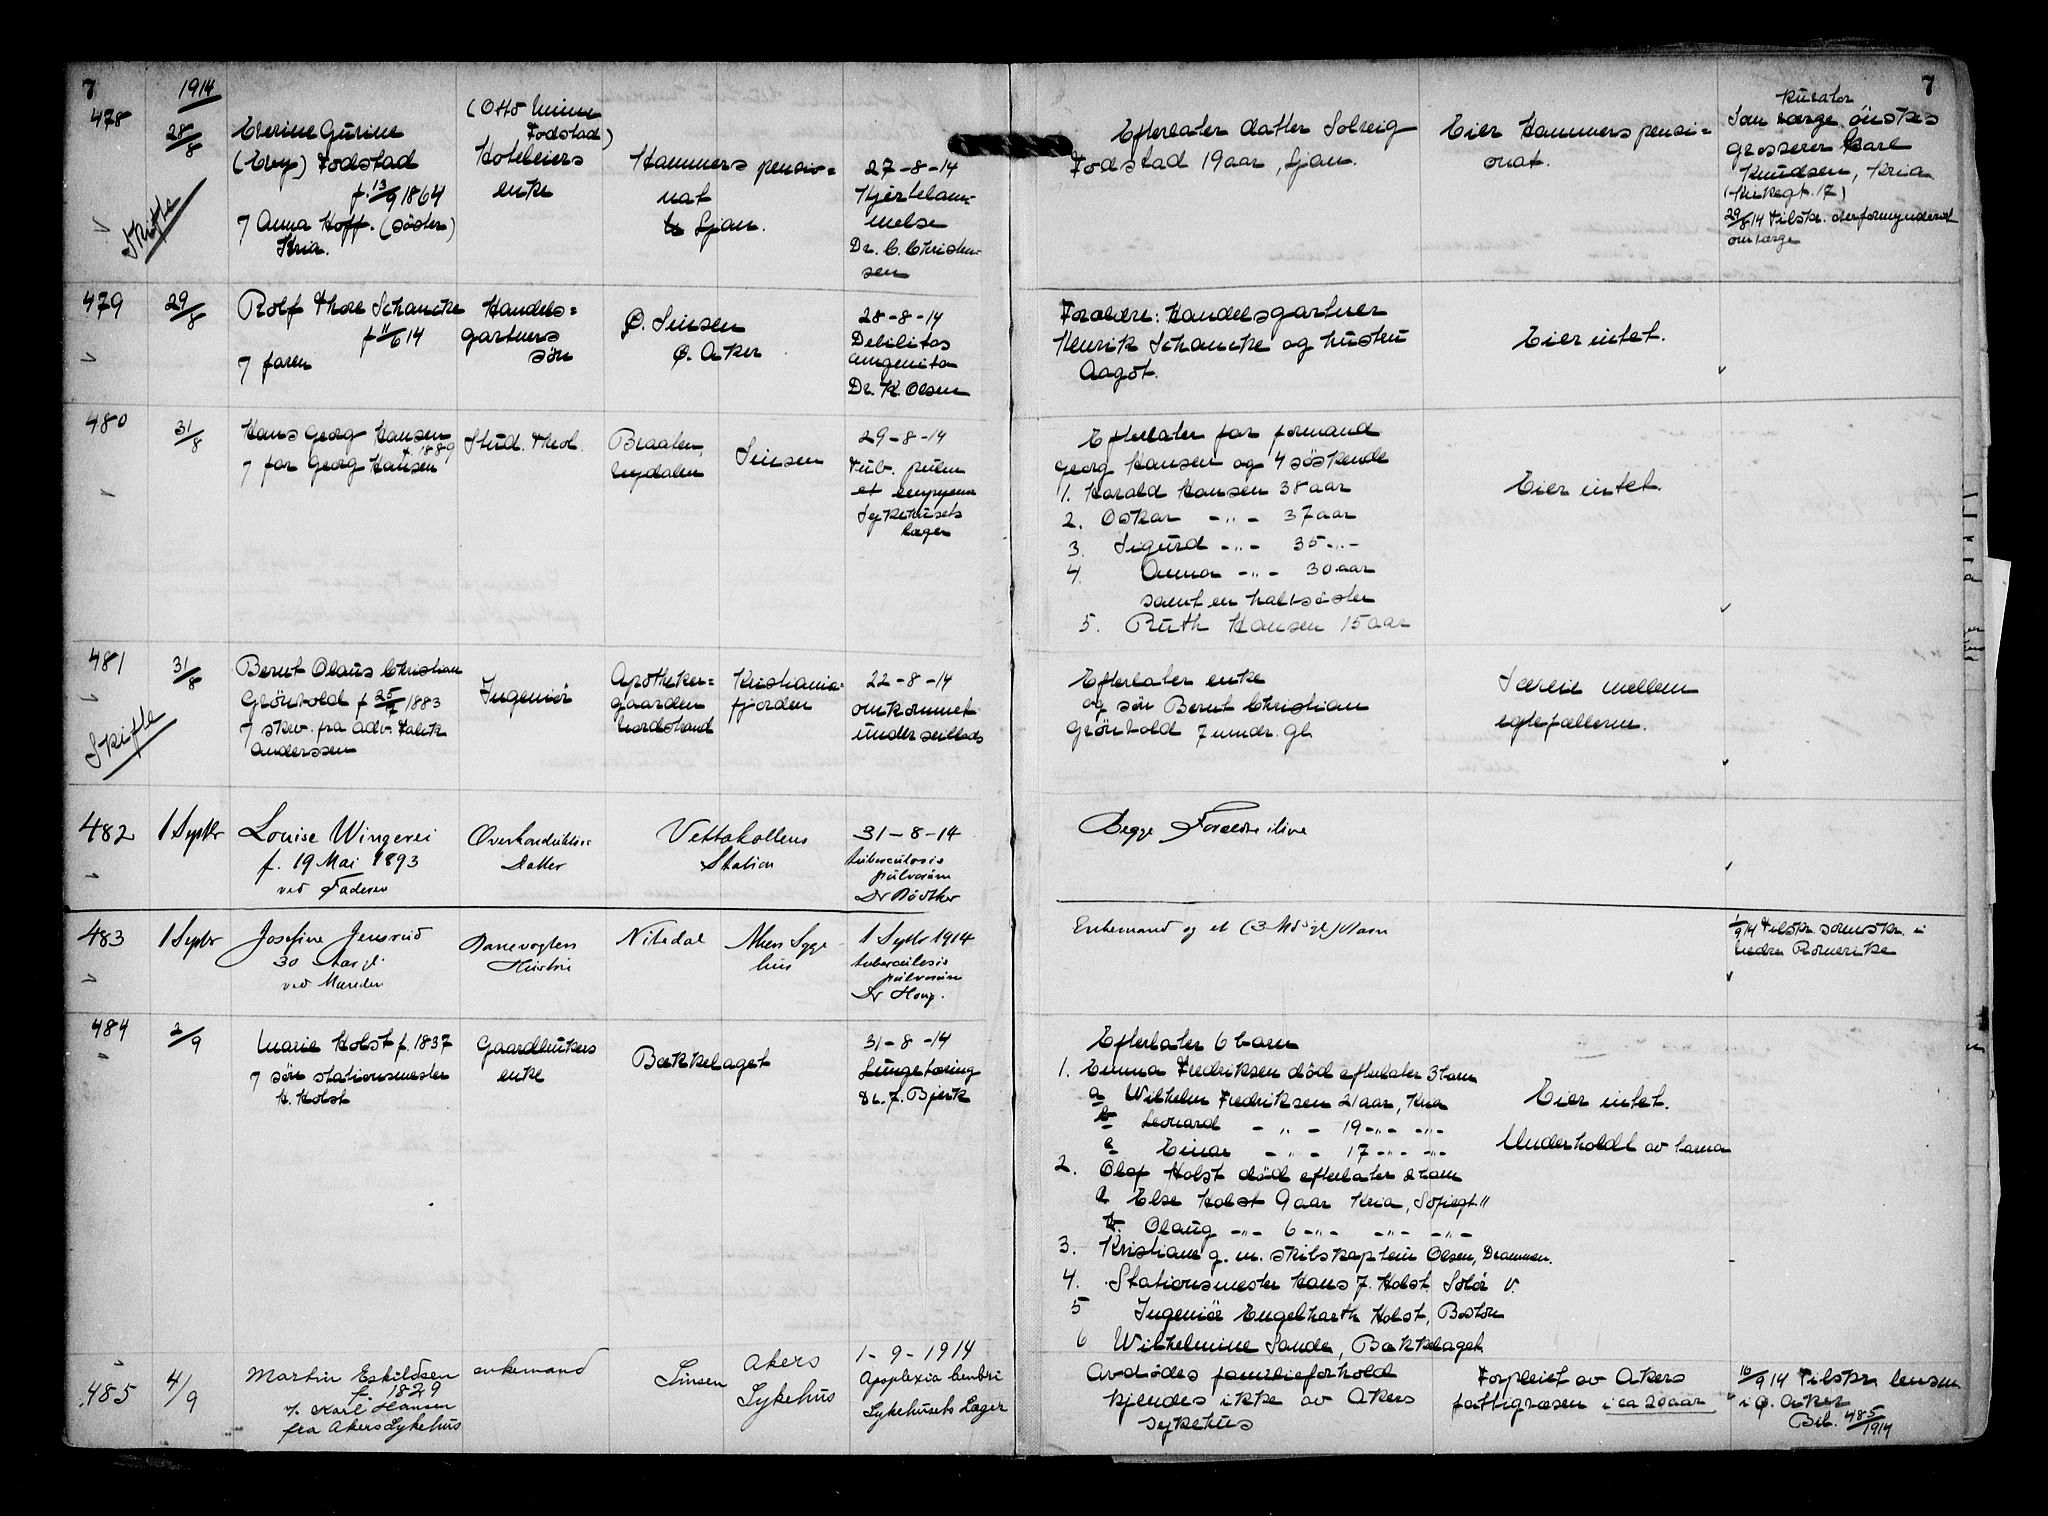 7
1914
478
28/8
Everine Gurine
(Evy) Fodstad
f. 13/9 1864
7 Anna Hoff. (søster)
Kria.
Skifte
(Otto
Fodstad)
Hoteleiers
enke
Hammers pensio=
nat
Ljan.
27-8-14
Hjertelam-
melse
Dr. C. Christen-
sen
Efterlater datter Solveig
Fodstad 19 aar, Ljan.
Eier Hammers pensi=
onat.
7
kurator
Som værge ønskes
grosserer Karl
Knudsen, Kria
(Kirkegt. 17)
29/8 14 tilskr. overformynderiet
om værge
479
29/8
Rolf Thore Schancke
f 11/6 14
7 faren
Handels=
gartners
søn
Ø. Sinsen
Ø. Aker
28-8-14
Debilitas
congenita
Dr. K. Olsen
Forældre: Handelsgartner
Henrik Schancke og hustru
Aagot.
Eier intet.
480
31/8
Hans Georg Hansen
f. 1889
7 far Georg Hansen
Stud. theol.
Braaten,
Nydalen
Sinsen
29-8-14
Tub. pulm
et empyem
Sykehusets
læger
Efterlater far formand
Georg Hansen og 4 søskende
1. Harald Hansen 38 aar
2. Oskar -"- 37 aar
3. Sigurd -"- 35 -"-
4. Anna -"- 30 aar
samt en halvsøster
5. Ruth Hansen 15 aar
Eier intet.
481
31/8
Bernt Olaus Christian
Grönvold f 25/ 1883
7 skr. fra adv. Falck
Anderssen
Skifte
Ingeniør
Apotheker=
gaarden
Nordstrand
Kristiania=
fjorden
22-8-14
omkommet
under seillads
Efterlater enke
og søn Bernt Christian
Grönvold 7 mndr. gl.
Særeie mellem
egtefællerne.
482
1 Septbr
Louise Wingerei
f. 19 Mai 1893
ved Faderen
Overkonduktørs
Datter
Vettakollens
Station
31-8-14
tuberculosis
pulmonum
Dr Bødtker
Begge Forældre ilive
483
1 Septbr
Josefine Jensrud
30 Aar gl.
ved Manden
Banevogters
Hustru
Nitedal
Akers Syge
hus
1 Septbr 1914
tuberculosis
pulmonum
Dr Houg.
Enkemand og et (3 Mds gl.) Barn
1/9 14 tilskr. sorenskr. i
Nedre Romerike
484
2/9
Marie Holst f. 1837
7 søn stationsmester
H. Holst
Gaardbrukers
enke
Bækkelaget
31-8-14
Lungetæring
Dr. J. Bjerk
Efterlater 6 barn
1. Emma Fredriksen död efterlater 3 barn
a Wilhelm Fredriksen 21 aar, Kria
b Leonard - " - 19 -"- -"-
c Einar - " - 17 -"- -"-
2. Olaf Holst död efterlater 2 barn
a Else Holst 9 aar Kria, Sofiegt. 11
b. Olaug -"- 6 -"- -"- -"-
3. Kristiane g. m. skibskaptein Olsen, Drammen.
4. Stationsmester Hans J. Holst Solör v.
5 Ingeniør Engelharth Holst, Boston
6 Wilhelmine Sande, Bækkelaget
Eier intet.
Underholdt av barna
485
4/9
Martin Eskildsen
f. 1829
v. Karl Hansen
fra Akers Sykehus
enkemand
Sinsen
Akers
Sykehus
1-9-1914
Apoplexia
Sykehusets Læger
Avdødes familieforhold
kjendes ikke av Akers
sykehus
Forpleiet av Akers
fattigvæsen i ca 20 aar
16/9 14 Tilskr. lensm
i Ø. Aker
Bil. 485/1914